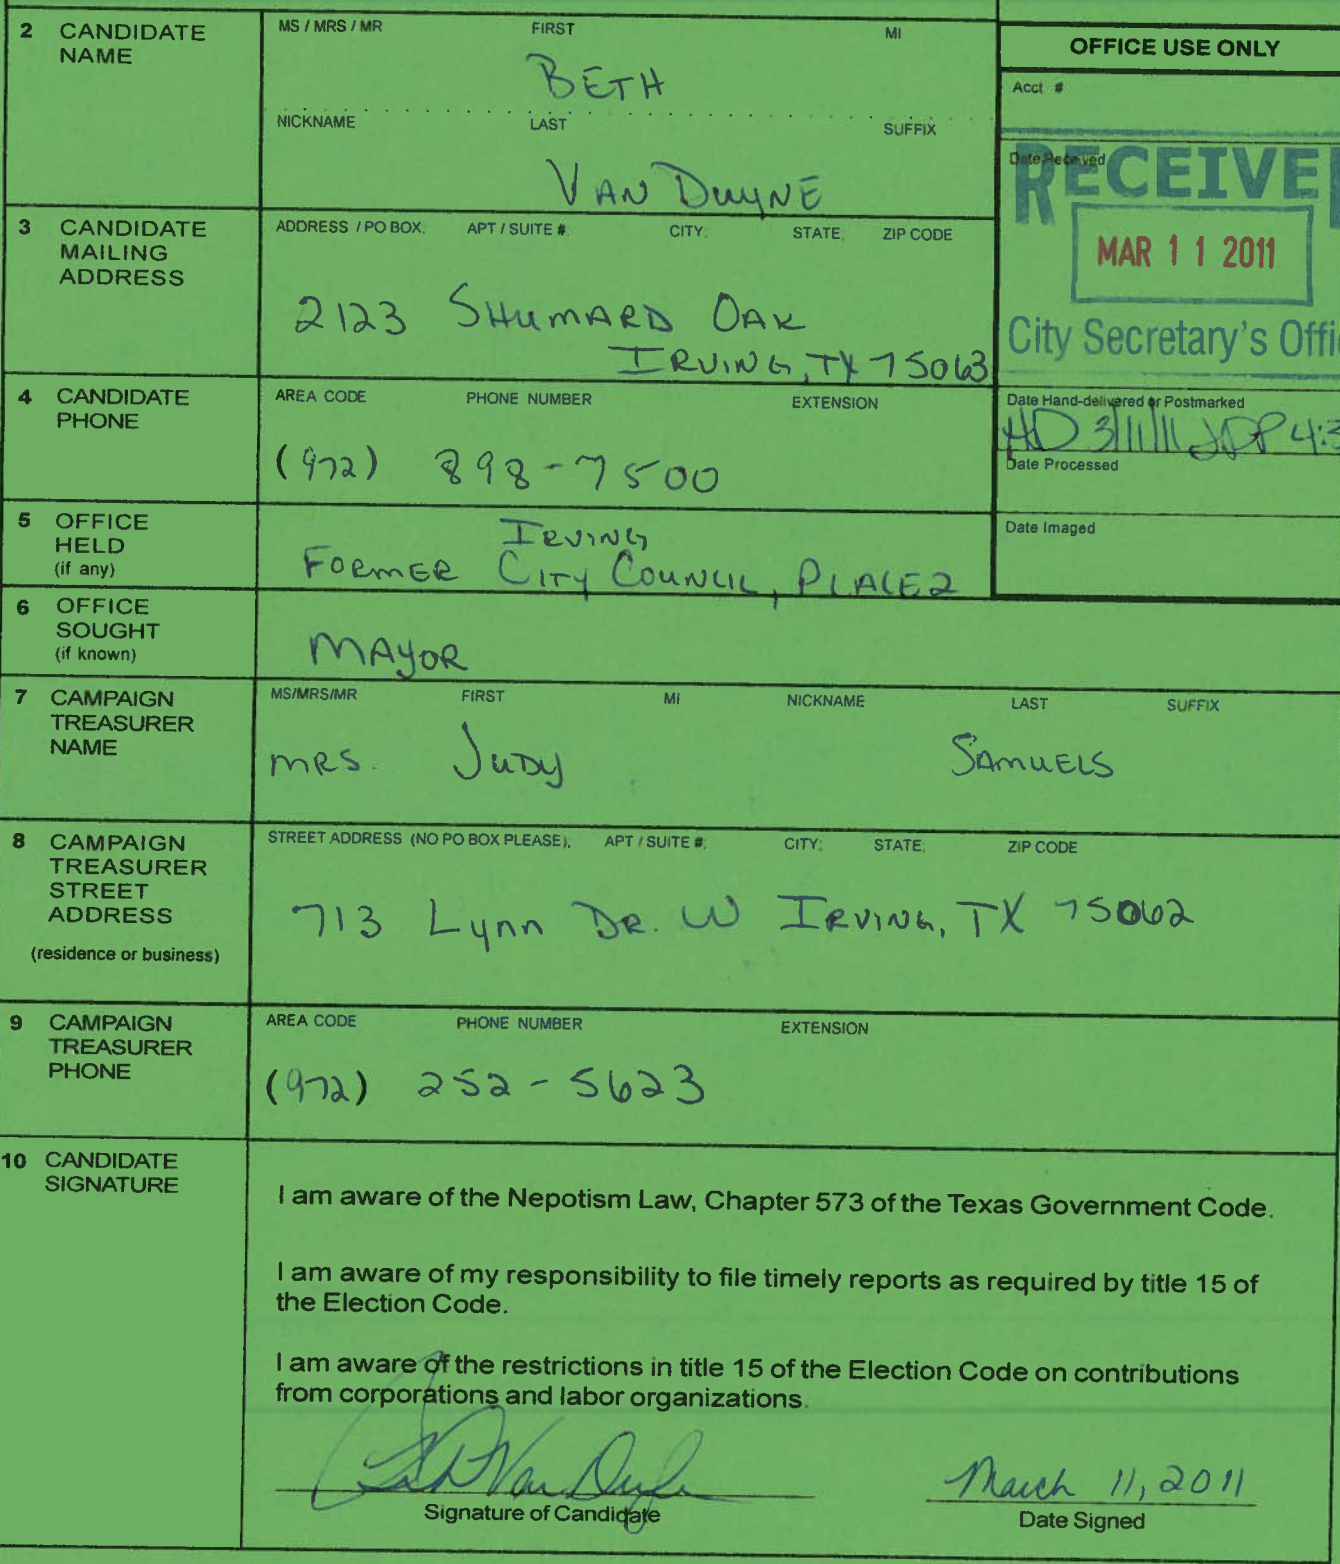 2 CANDIDATE NAME
MS / MRS / MR FIRST MI
BETH
NICKNAME LAST SUFFIX
VAN DUYNE
OFFICE USE ONLY
Acct #
Date Received
RECEIVE
MAR 11 2011
City Secretary's Offi
3 CANDIDATE MAILING ADDRESS
ADDRESS / PO BOX; APT / SUITE #; CITY; STATE; ZIP CODE
2123 SHUMARD OAK
IRVING, TX 75063
4 CANDIDATE PHONE
AREA CODE PHONE NUMBER EXTENSION
(972) 898-7500
Date Hand-delivered or Postmarked
HD 3/11/11 JDP 4:3
Date Processed
Date Imaged
5 OFFICE HELD (if any)
IRVING
FORMER CITY COUNCIL, PLACE 2
6 OFFICE SOUGHT (if known)
MAYOR
7 CAMPAIGN TREASURER NAME
MS/MRS/MR FIRST MI NICKNAME LAST SUFFIX
MRS. JUDY SAMUELS
8 CAMPAIGN TREASURER STREET ADDRESS
(residence or business)
STREET ADDRESS (NO PO BOX PLEASE); APT / SUITE #; CITY; STATE; ZIP CODE
713 Lynn DR. W IRVING, TX 75062
9 CAMPAIGN TREASURER PHONE
AREA CODE PHONE NUMBER EXTENSION
(972) 252-5623
10 CANDIDATE SIGNATURE
I am aware of the Nepotism Law, Chapter 573 of the Texas Government Code.
I am aware of my responsibility to file timely reports as required by title 15 of
the Election Code.
I am aware of the restrictions in title 15 of the Election Code on contributions
from corporations and labor organizations.
Beth Van Duyne
March 11, 2011
Signature of Candidate
Date Signed